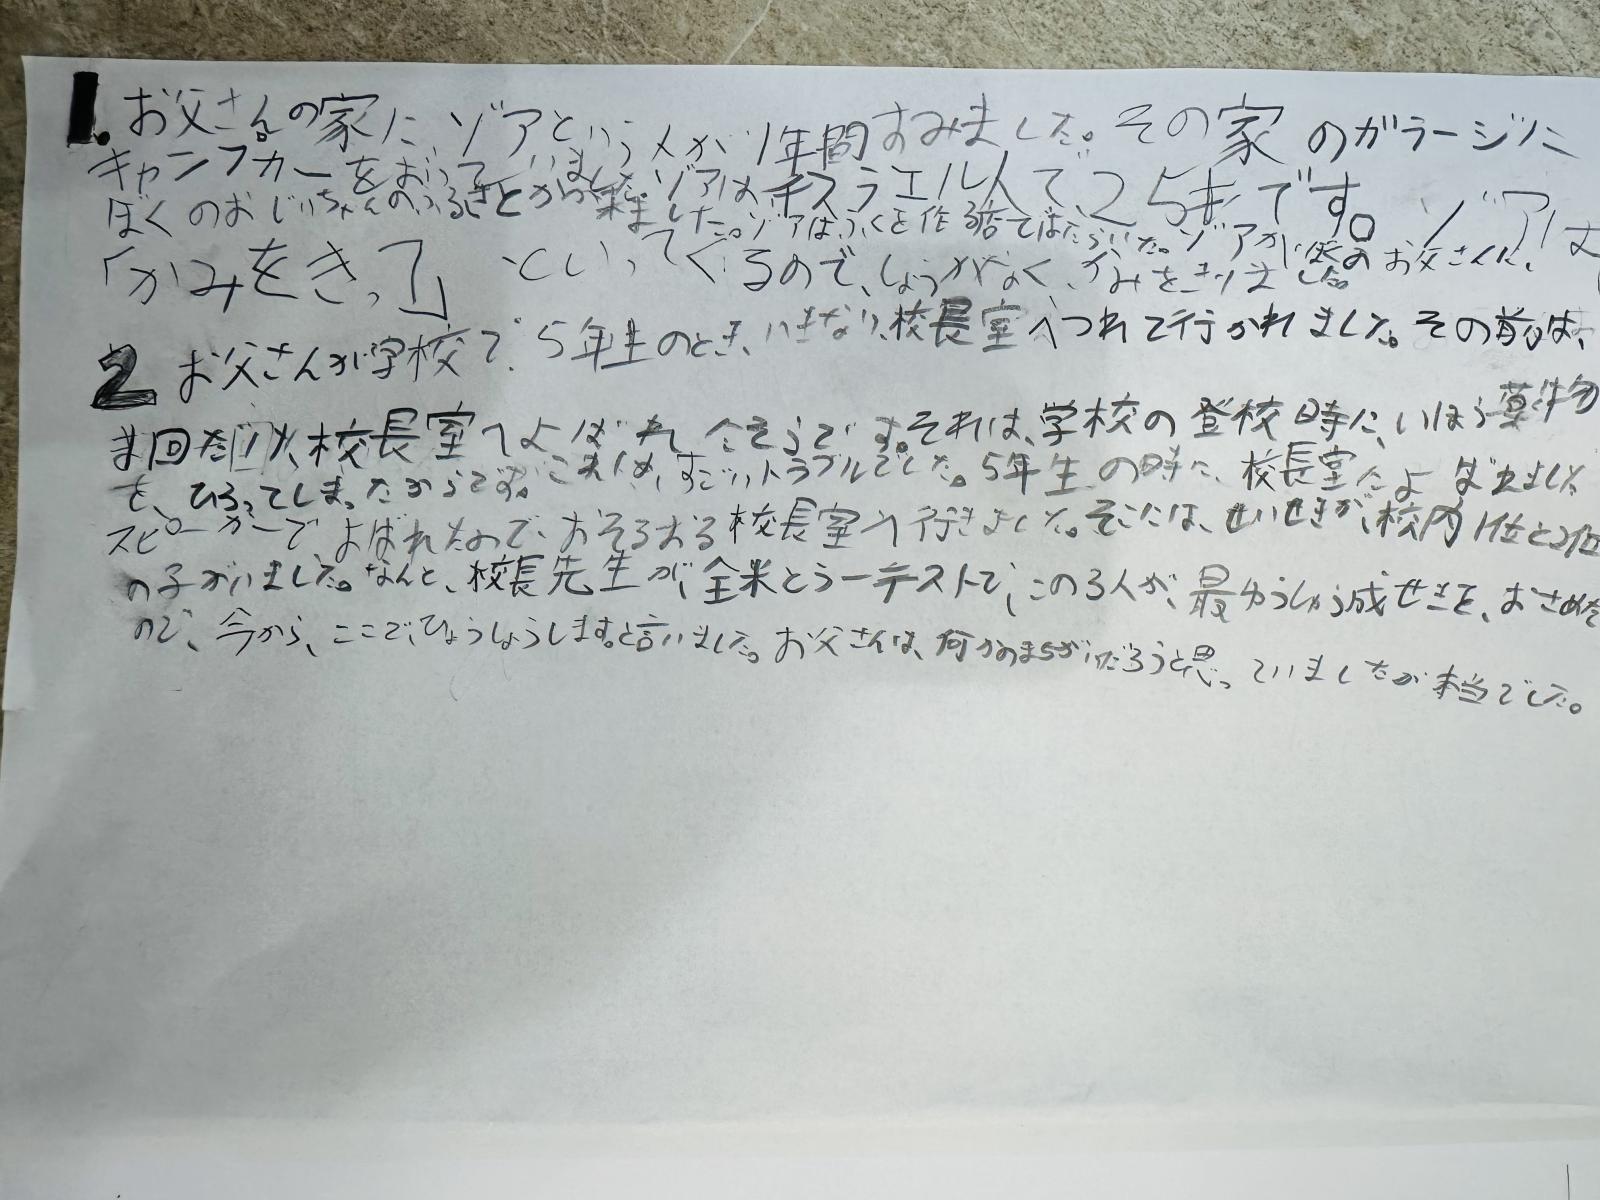 1. お父さんの家に、ゾアという人が1年間すみました。その家のガラージに
キャンプカーをおいていました。ゾアはイスラエル人で、25才です。ゾアは
ぼくのおじいちゃんのふるさとから来ました。ゾアはふくを作る店ではたらいた。ゾアがぼくのお父さんに、
「かみをきって」といってくるので、しょうがなく、かみをきりました。
2 お父さんが学校で、5年生のとき、いきなり、校長室へつれて行かれました。その前は、
1回だけ、校長室へよばれたそうです。それは、学校の登校時に、いほう薬物
を、ひろってしまったからです。これは、すごいトラブルでした。5年生の時に、校長室によばれました
スピーカーでよばれたので、おそるおそる校長室へ行きました。そこには、せいせきが、校内1位と2位
の子がいました。なんと、校長先生が、全米とう一テストで、この3人が、最ゆうしゅう成せきを、おさめた
ので、今から、ここで、ひょうしょうします。と言いました。お父さんは、何かのまちがいだろうと思っていましたが本当でした。